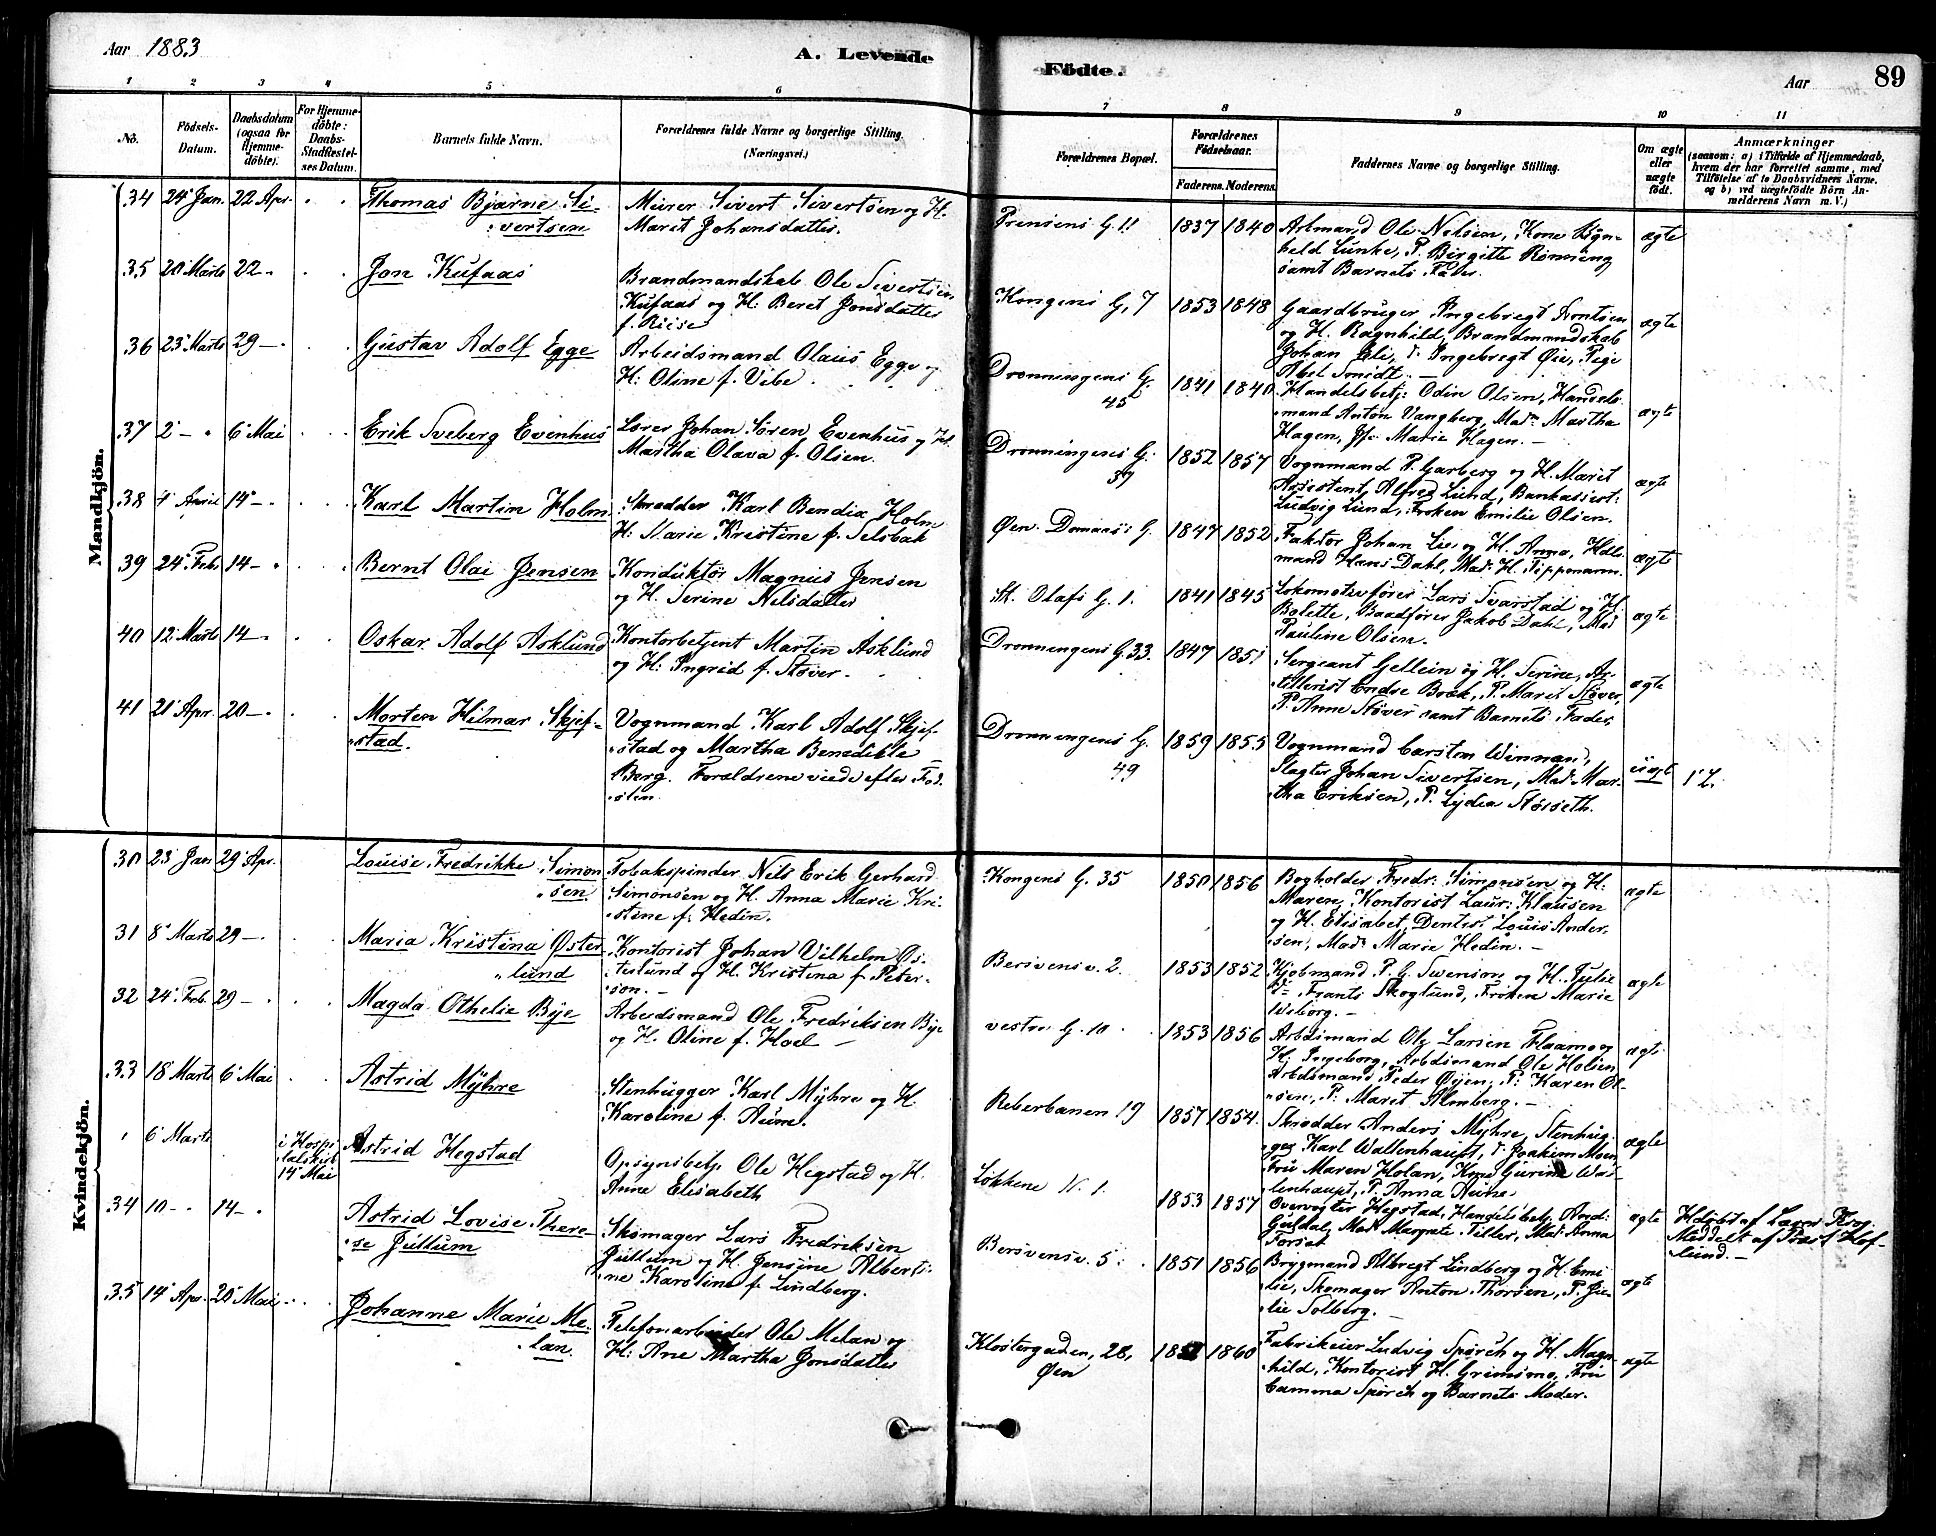 Aar 1883
A. Levende
Födte.
Aar
89
1 2 3 4 5 6 7 8 9 10 11
No.
Födsels-
Datum.
Daabsdatum
(ogsaa for
Hjemme-
döbte).
For Hjemme-
döbte:
Daabs-
Stadfæstel-
ses Datum.
Barnets fulde Navn.
Forældrenes fulde Navne og borgerlige Stilling.
(Næringsvei.)
Forældrenes Bopæl.
Forældrenes
Födselsaar.
Faderens. Moderens.
Faddernes Navne og borgerlige Stilling.
Om ægte
eller
uægte
födt.
Anmærkninger
(saasom: a) i Tilfælde af Hjemmedaab,
hvem der har forrettet samme, med
Tilföielse af to Daabsvidners Navne.
og b) ved uægtefödte Börn An-
melderens Navn m. V.)
Mandkjön.
34 24 Jan. 22 Apr.
Thomas Bjarne Si-
vertsen
Murer Sivert Sivertsen og H.
Marit Johansdatter.
Prinsens G. 11
1837 1840
Arbmand Ole Nilsen, Kone Ragn-
hild Lunke, P. Birgitte Rönning
samt Barnets Fader.
ægte
35 20 Marts 22 -
Jon Kufaas
Brandmandskab Ole Sivertsen
Kufaas og H. Beret Jonsdatter
f. Riise
Kongens G. 7
1853 1848
Gaardbruger Ingebregt
og H. Ragnhild, Brandmandskab
Johan Eli, d. Ingebregt Öie, Pige
Abel Smidt.
ægte
36 23 Marts 29 -
Gustav Adolf Egge
Arbeidsmand Olaus Egge og
H. Oline f. Vibe.
Dronningens G.
45
1841 1840
Handelsbetj: Odin Olsen, Handels-
mand Anton Vangberg, Mad. Martha
Hagen, Jfr. Marie Hagen. -
ægte
37 2 - 6 Mai
Erik Sveberg Evenhus
Lærer Johan Sören Evenhus og H.
Martha Olava f. Olsen.
Dronningens G.
39
1852 1857
Vognmand P. Garberg og H. Marit
Assistent Alfred Lund, Bankassist.
Ludvig Lund, Fröken Emilie Olsen.
ægte
38 4 April 14 -
Karl Martin Holm
Skrædder Karl Bendix Holm
H. Marie Kristine f. Selsbak
Öen. Domaas: G.
1847 1852
Faktor Johan Lie og H. Anna, Hdls-
mand Hans Dahl, Mad. H. Tippenarm.
ægte
39 24 Feb. 14 -
Bernt Olai Jensen
Konduktör Magnus Jensen
og H. Serine Nilsdatter
St. Olafs G. 1.
1841 1845
Lokomotivförer Lars Svarstad og H.
Bolette, Baadförer Jakob Dahl, Mad
Pauline Olsen.
ægte
40 12 Marts 14 -
Oskar Adolf Asklund
Kontorbetjent Martin Asklund
og H: Ingrid f. Stöver.
Dronningens G. 33.
1847 1851
Sergeant Gellein og H. Serine, Ar-
tillerist Endre Boek, P. Marit Stöver,
P. Anne Stöver samt Barnets Fader,
ægte
41 21 Apr. 20 -
Morten Hilmar Skjef-
stad.
Vognmand Karl Adolf Skjef-
stad og Martha Benedikte
Berg. Forældrene viede efter Föd-
selen.
Dronningens G.
49
1859 1855
Vognmand Carsten Winnan,
Slagter Johan Sivertsen, Mad. Mar-
tha Eriksen, P. Lydia Störseth.
uægt
Kvindekjön.
30 23 Jan 29 Apr.
Louise Fredrikke Simon-
sen.
Tobakspinder Nils Erik Gerhard
Simonsen og H. Anna Marie Kri-
stine f. Hedin.
Kongens G. 35
1850 1856
Bogholder Fredr: Simonsen og H:
Maren, Kontorist Laur: Klausen
og H. Elisabet, Dentist Louis Ander-
sen, Mad. Marie Hedin. -
ægte
31 8 Marts 29 -
Maria Kristina Öster-
lund
Kontorist Johan Vilhelm Ös-
terlund og H. Kristina f. Peter-
son. -
Bersvensv. 2.
1853 1852
Kjöbmand P. G. Svenson og H. Julie
Frants Skoglund, Fröken Marie
Wiborg. -
ægte
32 24 Feb. 29 -
Magda Othelie Bye
Arbeidsmand Ole Fredriksen Bye
og H. Oline f. Hoel -
vestre G. 10
1853 1856
Arbdsmand Ole Larsen Flaamo og
H: Ingeborg, Arbdsmand Ole Holien
Arbdsmand Peder Öyen, P: Karen Ol-
sen, P. Marit Almberg. -
ægte
33 18 Marts 6 Mai
Astrid Myhre
Stenhugger Karl Myhre og H.
Karoline f. Aune.
Reberbanen 19
1857 1854.
Skrædder Anders Myhre, Stenhug-
ger Karl Wallenhaupt, d. Joakim Moen
Fru Maren Holan, Kone Gurine Wal-
lenhaupt, P. Anna Aune.
ægte
6 Marts
i Hospi-
talskirk
14 Mai
Astrid Hegstad
Opsynsbetj. Ole Hegstad og H.
Anne Elisabeth
Lökkene N. 1.
1853 1857
Overvogter Hegstad, Handelsbetj. And:
Guldal, Mad. Margrete Tiller, Mad. Anna
Forset
ægte
Hdöbt af Læge
Meddelt af Præst Hof-
lund. -
34 10 - 14 -
Astrid Lovise There-
se Jullum
Skomager Lars Fredriksen
Jullum og H. Jensine Alberti-
ne Karoline f. Lindberg.
Bersvensv. 5.
1851 1856
Brygmand Albregt Lindberg og H. Emi-
lie, Skomager Anton Thorsen, P. Ju-
lie Solberg.
ægte
35 14 Apr. 20 Mai
Johanne Marie Me-
lan.
Telefonarbeider Ole Melan og
H: Ane Martha Jonsdatter
Klostergaden, 28,
Öen
1860
Fabrikeier Ludvig Spörck og H. Magn-
hild, Kontorist H. Grimsmo, Fru
Camma Spörck og Barnets Moder.
ægte